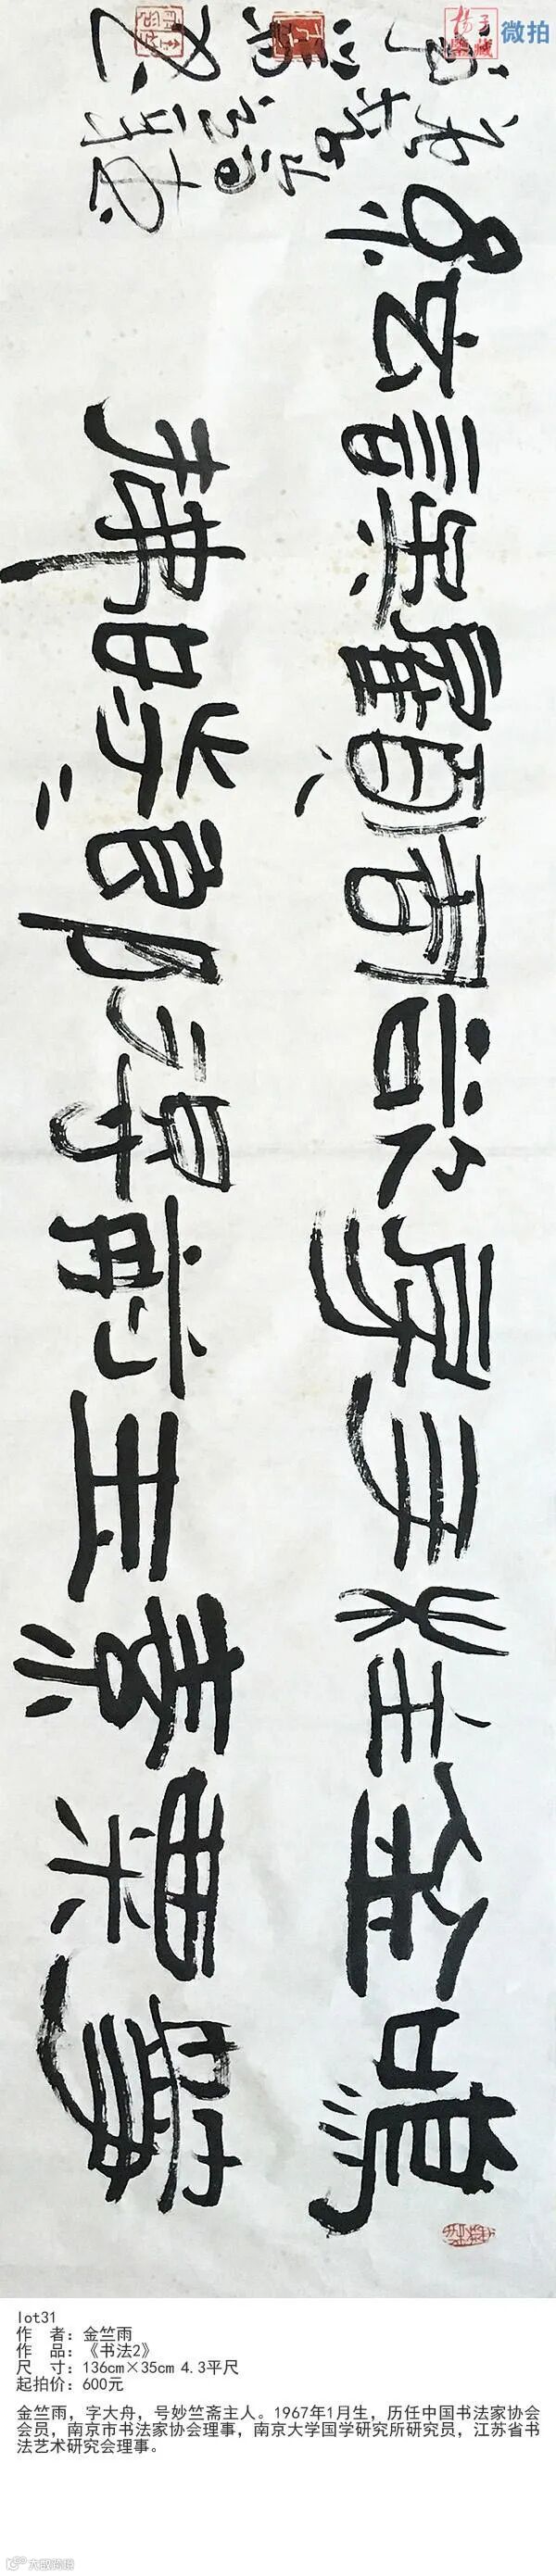 鳴箏
金粟
柱素
手玉
房前
欲得
周郎
顧時
誤拂
絃
微拍
lot31
作 者：金竺雨
作 品：《书法2》
尺 寸：136cm×35cm 4.3平尺
起拍价：600元
金竺雨，字大舟，号妙竺斋主人。1967年1月生，历任中国书法家协会
会员，南京市书法家协会理事，南京大学国学研究所研究员，江苏省书
法艺术研究会理事。